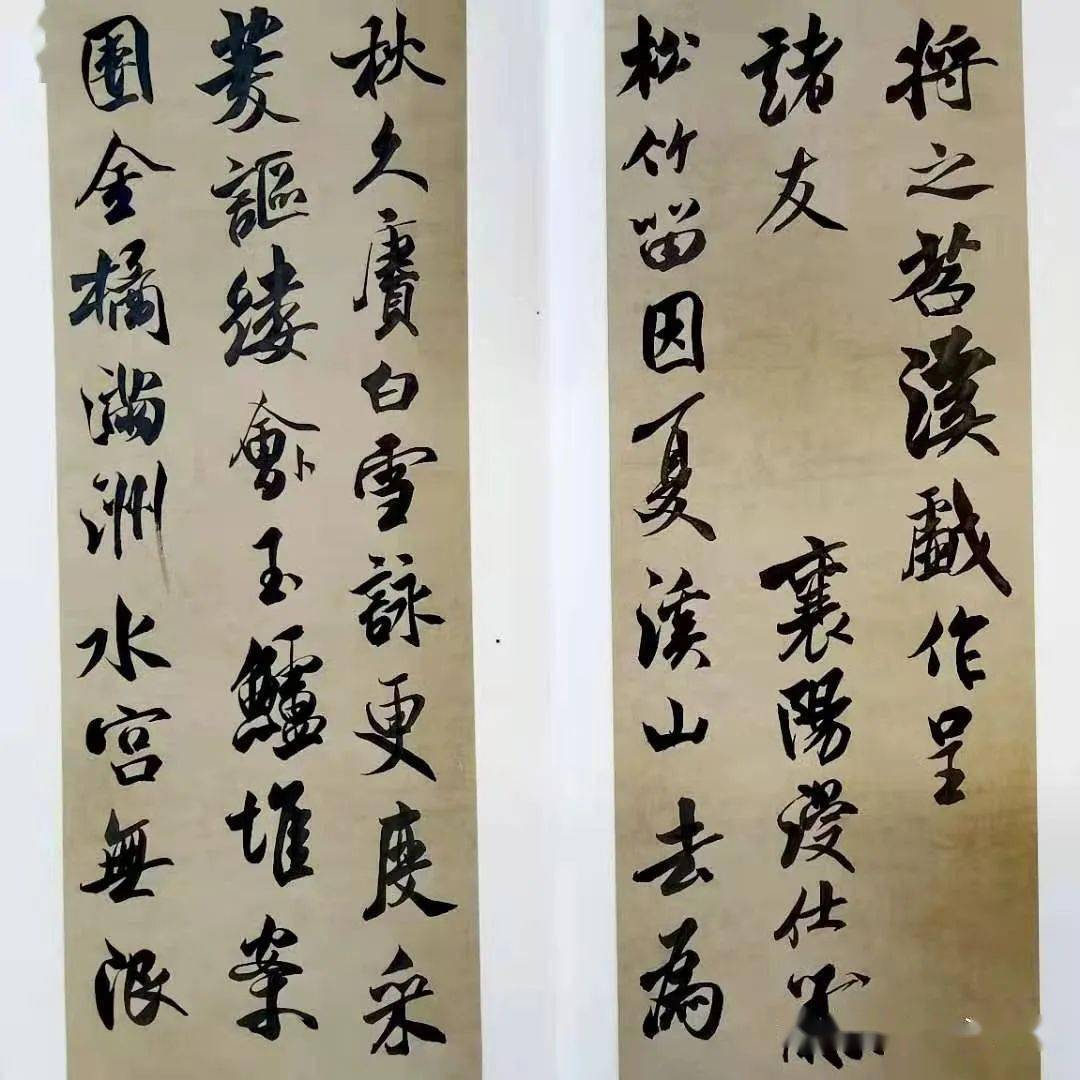 將之苕溪戲作呈
諸友
襄陽漫仕黻
松竹留因夏溪山去為
秋久賡白雪詠更度采
菱謳縷會卜玉鱸堆案
團金橘滿洲水宮無限